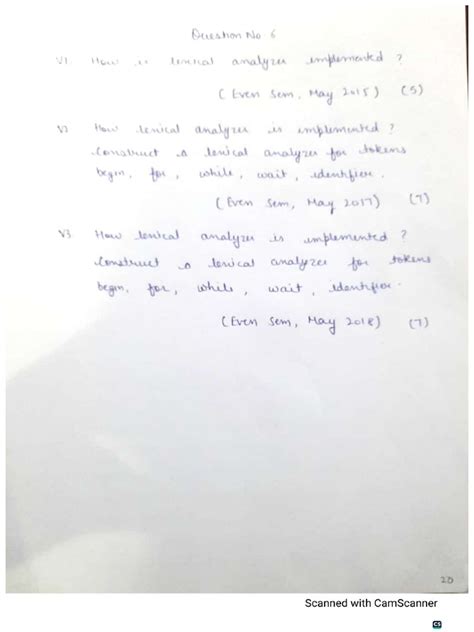 Question No 6
V1. How is lexical analyzer implemented ?
(Even Sem, May 2015) (5)
V2 How lexical analyzer is implemented ?
Construct a lexical analyzer for tokens
begin, for, while, wait, identifier.
(Even Sem, May 2017) (7)
V3. How lexical analyzer is implemented ?
Construct a lexical analyzer for tokens
begin, for, while, wait, identifier.
(Even Sem, May 2018) (7)
20
Scanned with CamScanner
CS